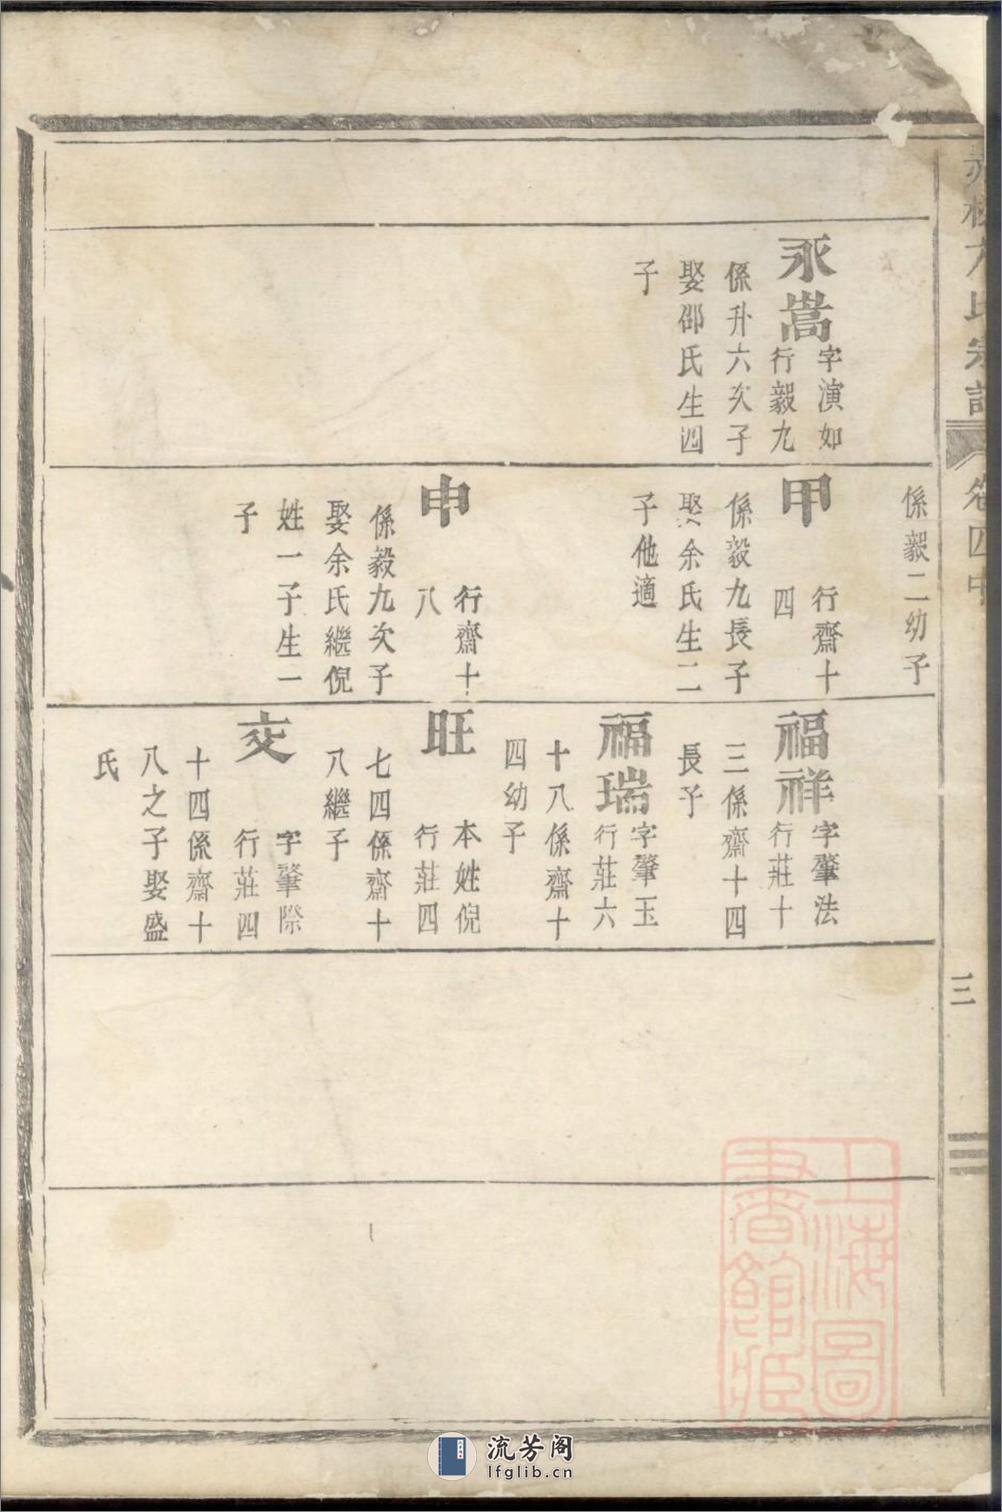 氏宗譜
卷四中
三
係毅二幼子
永嵩
字演如
行毅九
係升六次子
娶邵氏生四
子
甲
行齋十
四
係毅九長子
娶余氏生二
子他適
申
行齋十
八
係毅九次子
娶余氏繼倪
姓一子生一
子
福祥
字肇法
行莊十
三係齋十四
長子
福瑞
字肇玉
行莊六
十八係齋十
四幼子
旺
本姓倪
行莊四
七四係齋十
八繼子
交
字肇際
行莊四
十四係齋十
八之子娶盛
氏
上海圖
書館藏
流芳阁
lfglib.cn